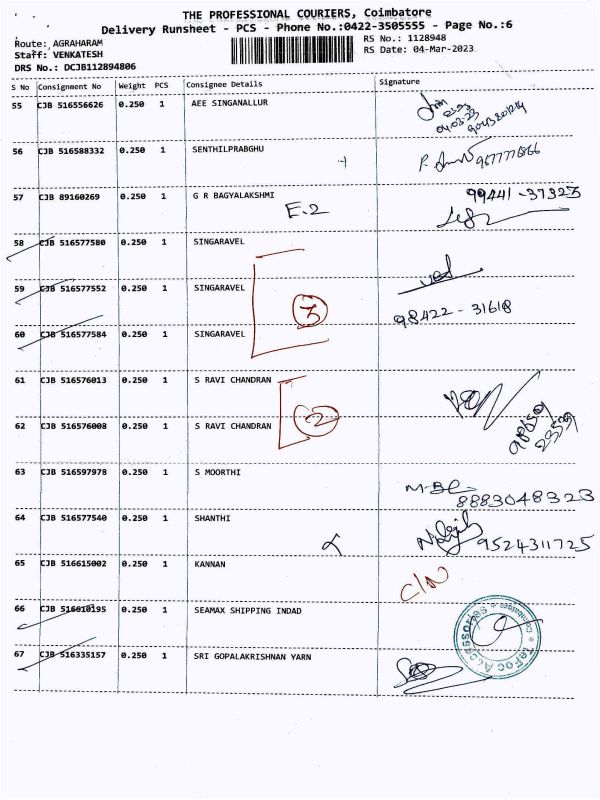 THE PROFESSIONAL COURIERS, Coimbatore
Delivery Runsheet - PCS - Phone No.:0422-3505555 - Page No.:6
Route: AGRAHARAM
RS No.: 1128948
Staff: VENKATESH
RS Date: 04-Mar-2023
DRS No.: DCJB112894806
S No Consignment No Weight PCS Consignee Details Signature
55 CJB 516556626 0.250 1 AEE SINGANALLUR
56 CJB 516588332 0.250 1 SENTHILPRABGHU
57 CJB 89160269 0.250 1 G R BAGYALAKSHMI 99441-37323
E.2
58 CJB 516577580 0.250 1 SINGARAVEL
59 CJB 516577552 0.250 1 SINGARAVEL
3
98422-31618
60 CJB 516577584 0.250 1 SINGARAVEL
61 CJB 516576013 0.250 1 S RAVI CHANDRAN
2
62 CJB 516576008 0.250 1 S RAVI CHANDRAN
63 CJB 516597978 0.250 1 S MOORTHI
8883048323
64 CJB 516577540 0.250 1 SHANTHI
9524311725
65 CJB 516615002 0.250 1 KANNAN
C/N
66 CJB 516610195 0.250 1 SEAMAX SHIPPING INDAD
67 CJB 516335157 0.250 1 SRI GOPALAKRISHNAN YARN